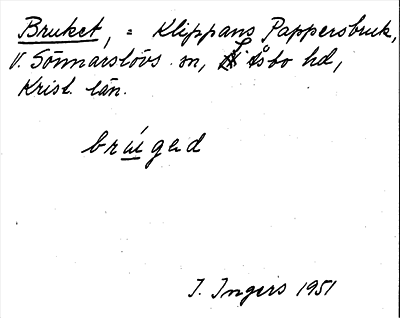 Bruket, = Klippans Pappersbruk,
V. Sönnarslövs sn, Åsbo hd,
Krist. län.
brúged
I. Ingers 1951